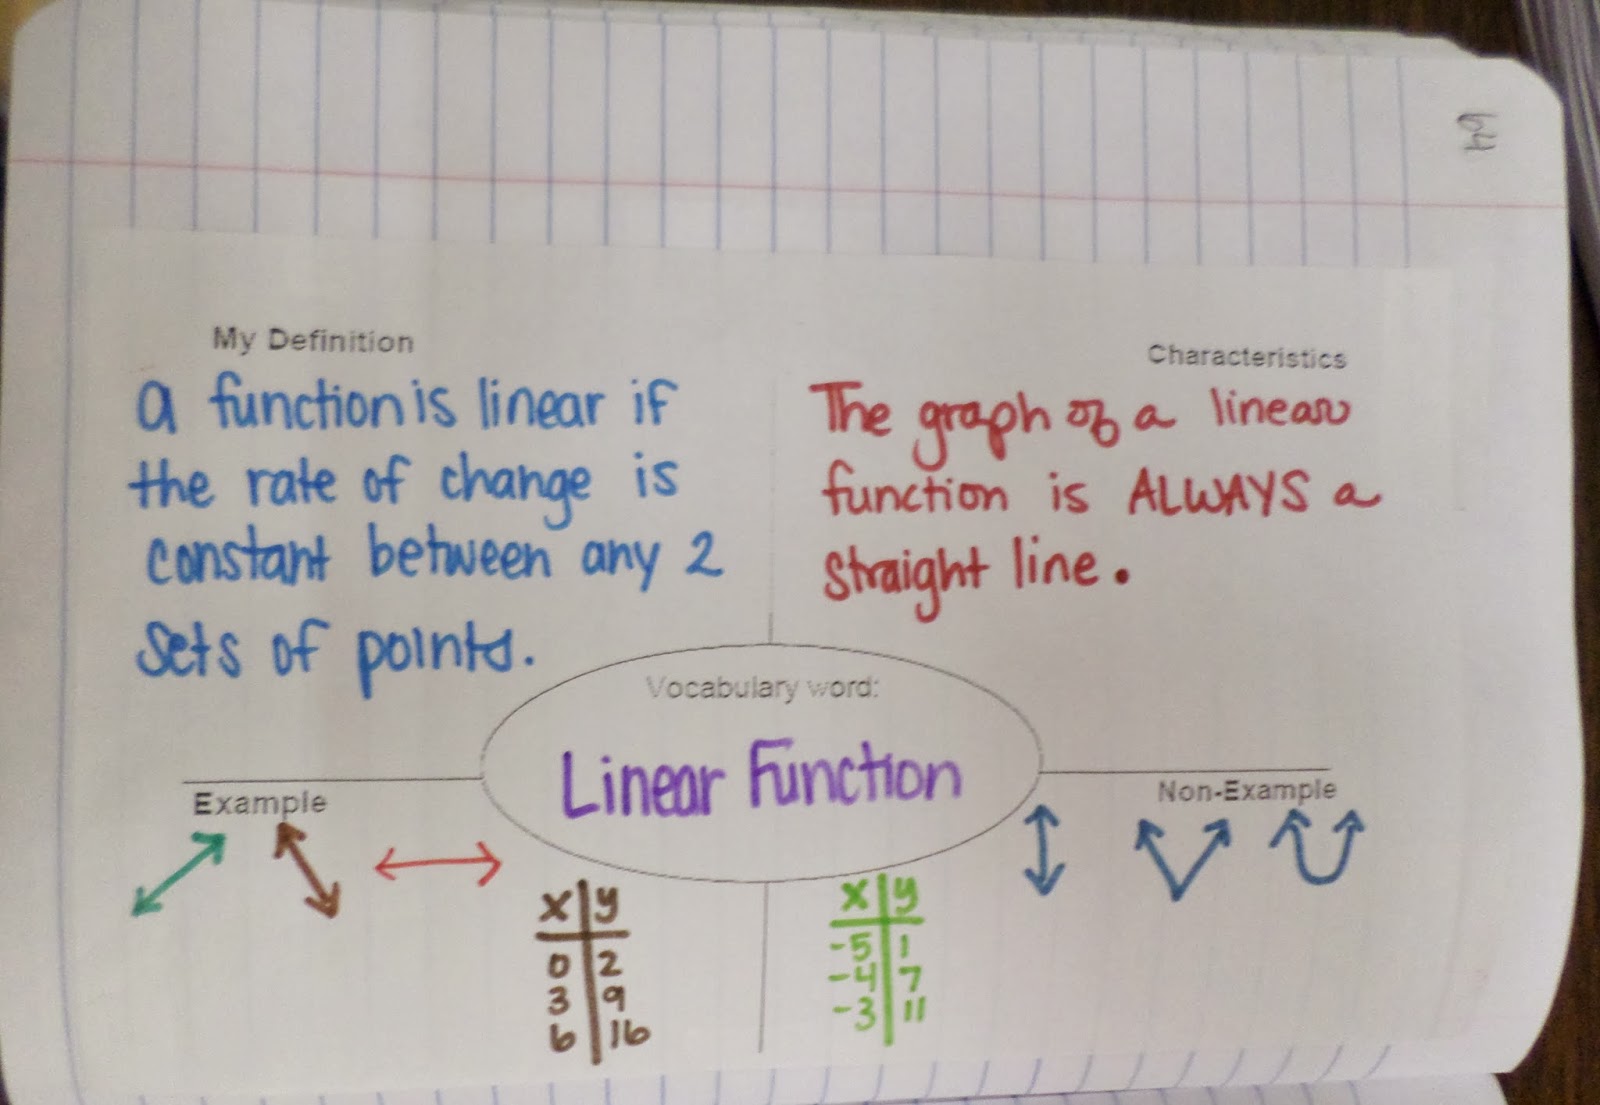 64
My Definition
a function is linear if
the rate of change is
constant between any 2
sets of points.
Characteristics
The graph of a linear
function is ALWAYS a
straight line.
Vocabulary word:
Linear Function
Example
x y
0 2
3 9
6 16
Non-Example
x y
-5 1
-4 7
-3 11